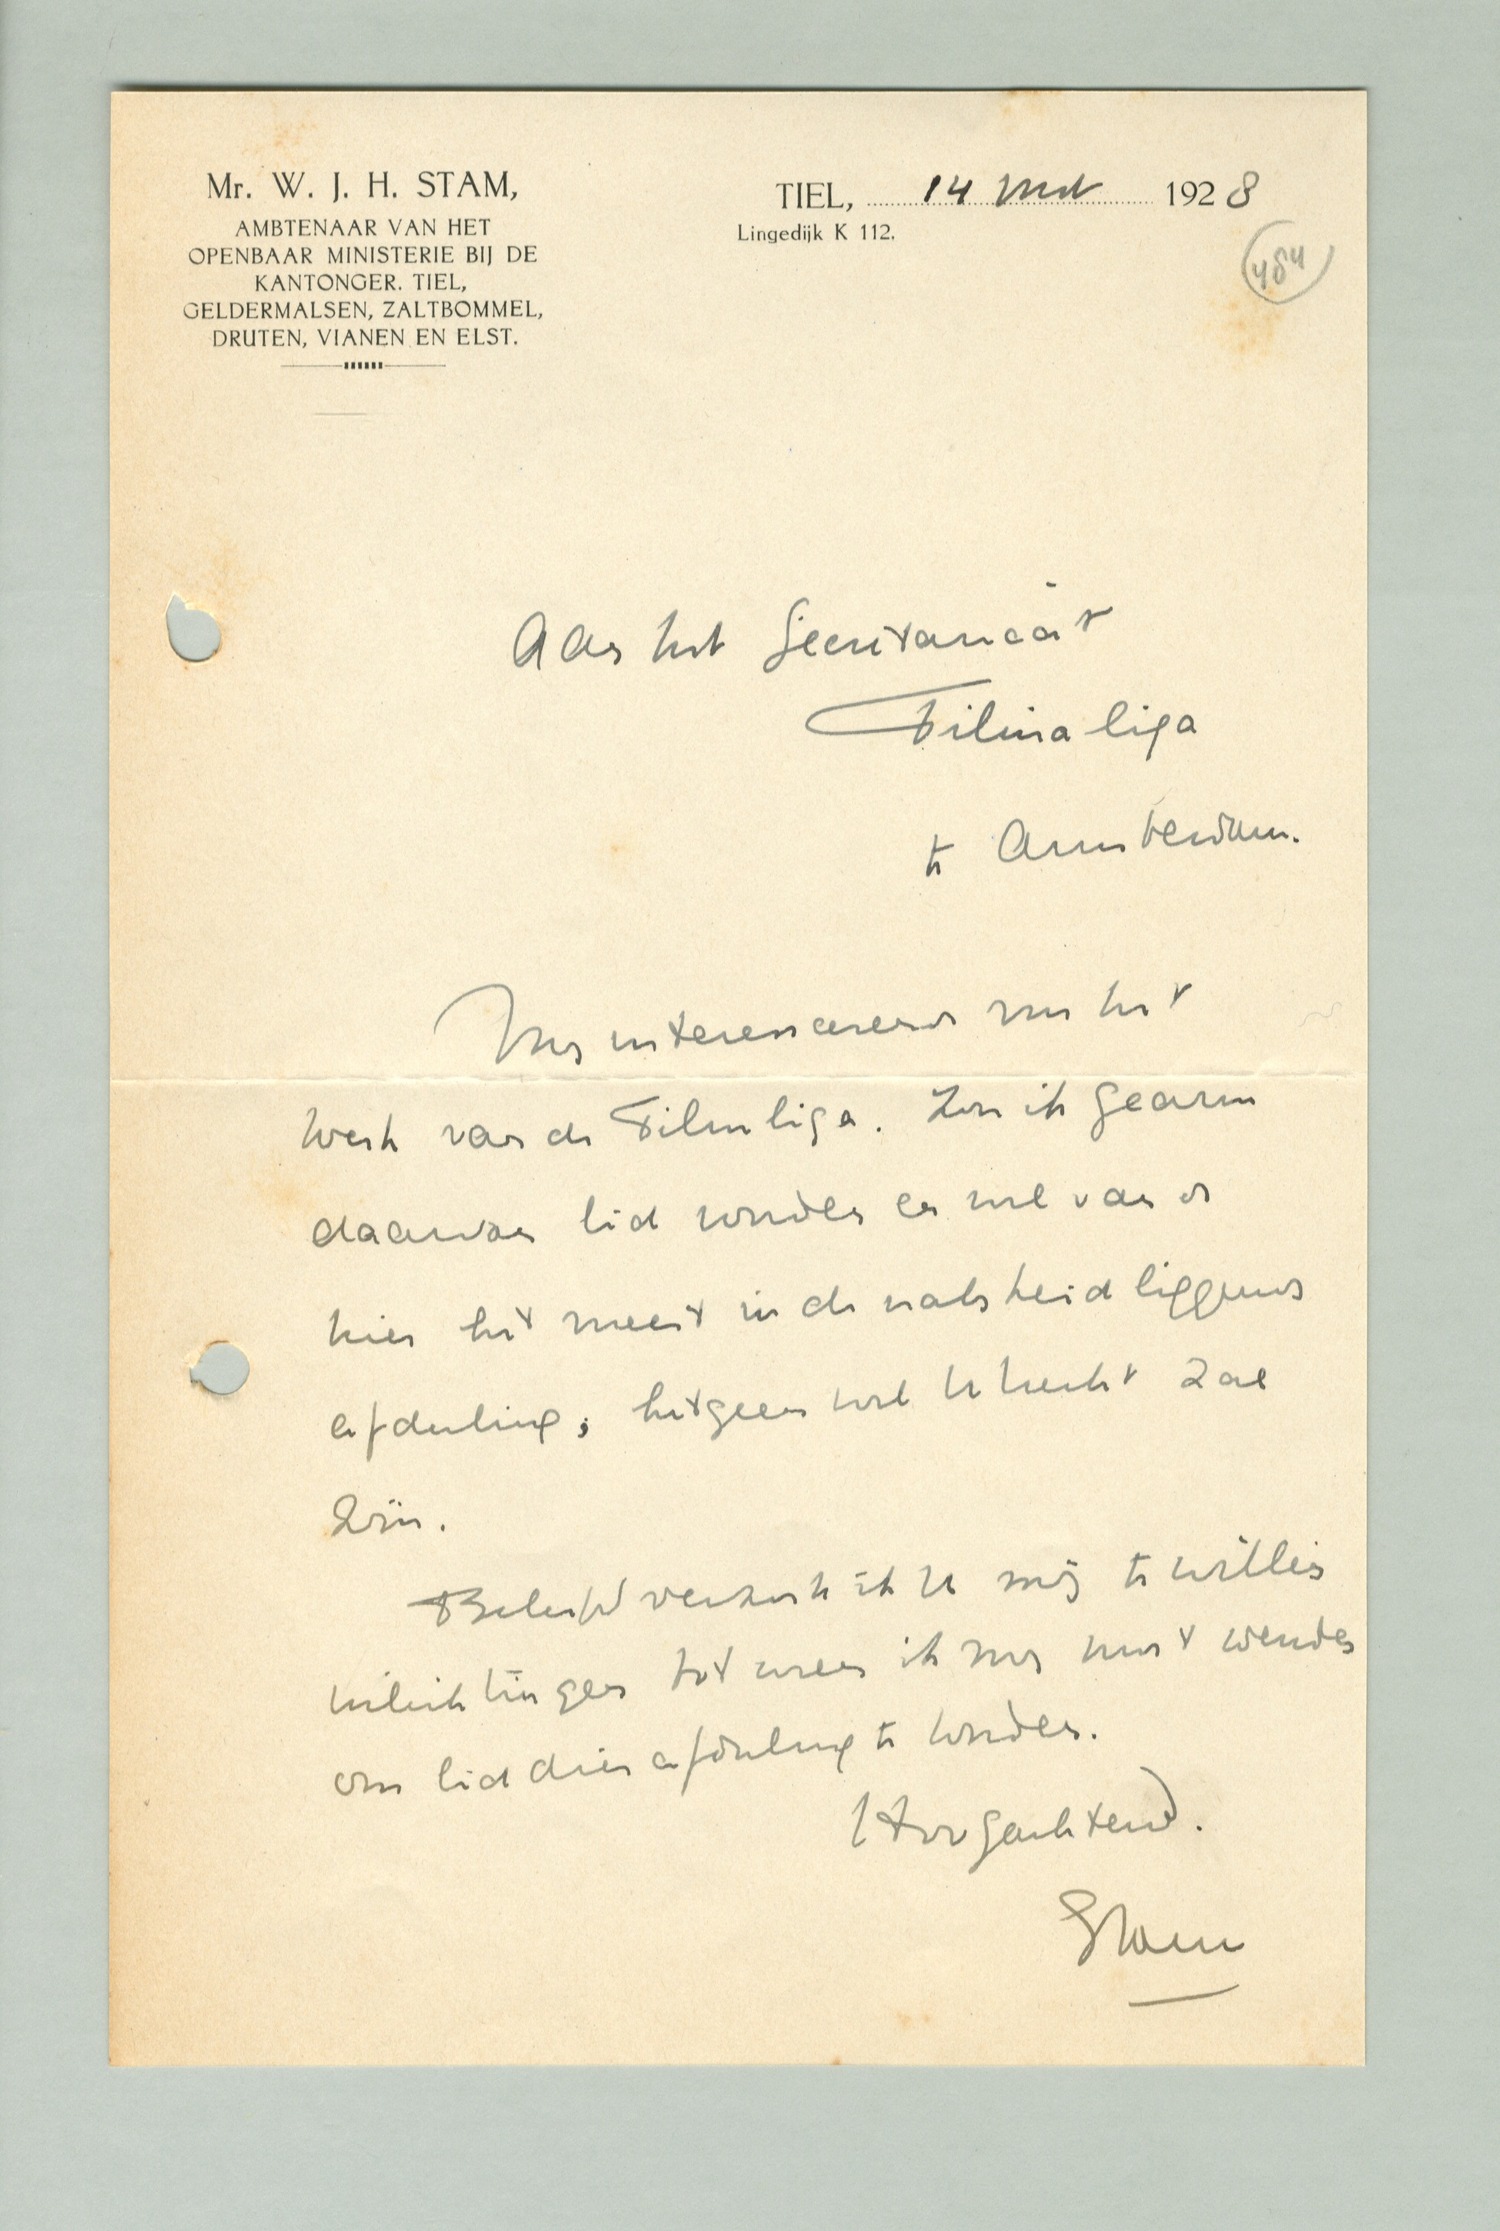 Mr. W. J. H. STAM,
AMBTENAAR VAN HET
OPENBAAR MINISTERIE BIJ DE
KANTONGER. TIEL,
GELDERMALSEN, ZALTBOMMEL,
DRUTEN, VIANEN EN ELST.
TIEL, 14 Mrt 1928
Lingedijk K 112.
484
Aan het Secretariaat
Filmaliga
te Amsterdam.
Mij interesseerend voor het
werk van de Filmliga. Zou ik gaarne
daarvan lid worden en wel van de
hier het meest in de nabijheid liggende
afdeeling, hetgeen wel Utrecht zal
zijn.
Beleefd verzoek ik U mij te willen
inlichtingen tot wien ik mij moet wenden
om lid dier afdeeling te worden.
Hoogachtend.
Stam